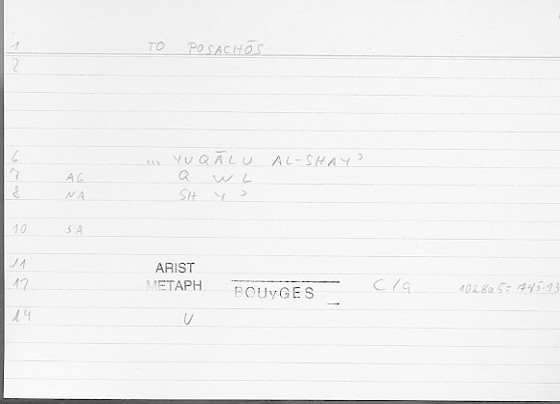 1 TO POSACHŌS
2
6 ... YUQĀLU AL-SHAYʾ
7 AG Q W L
8 NA SH Y ʾ
10 SA
11 ARIST
12 METAPH BOUyGES C/q 1028a5 = 745.13
14 U